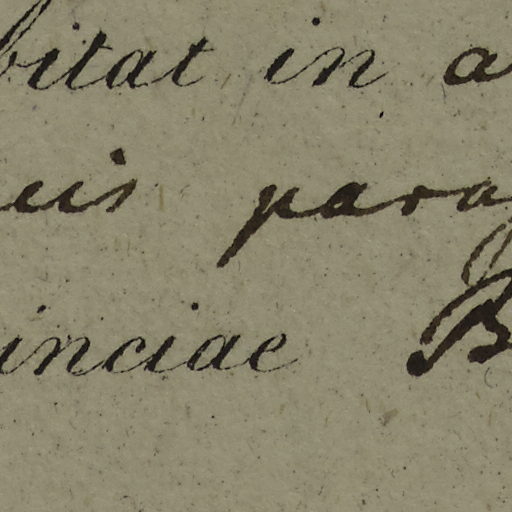 bitat in a
eis para
inciae B